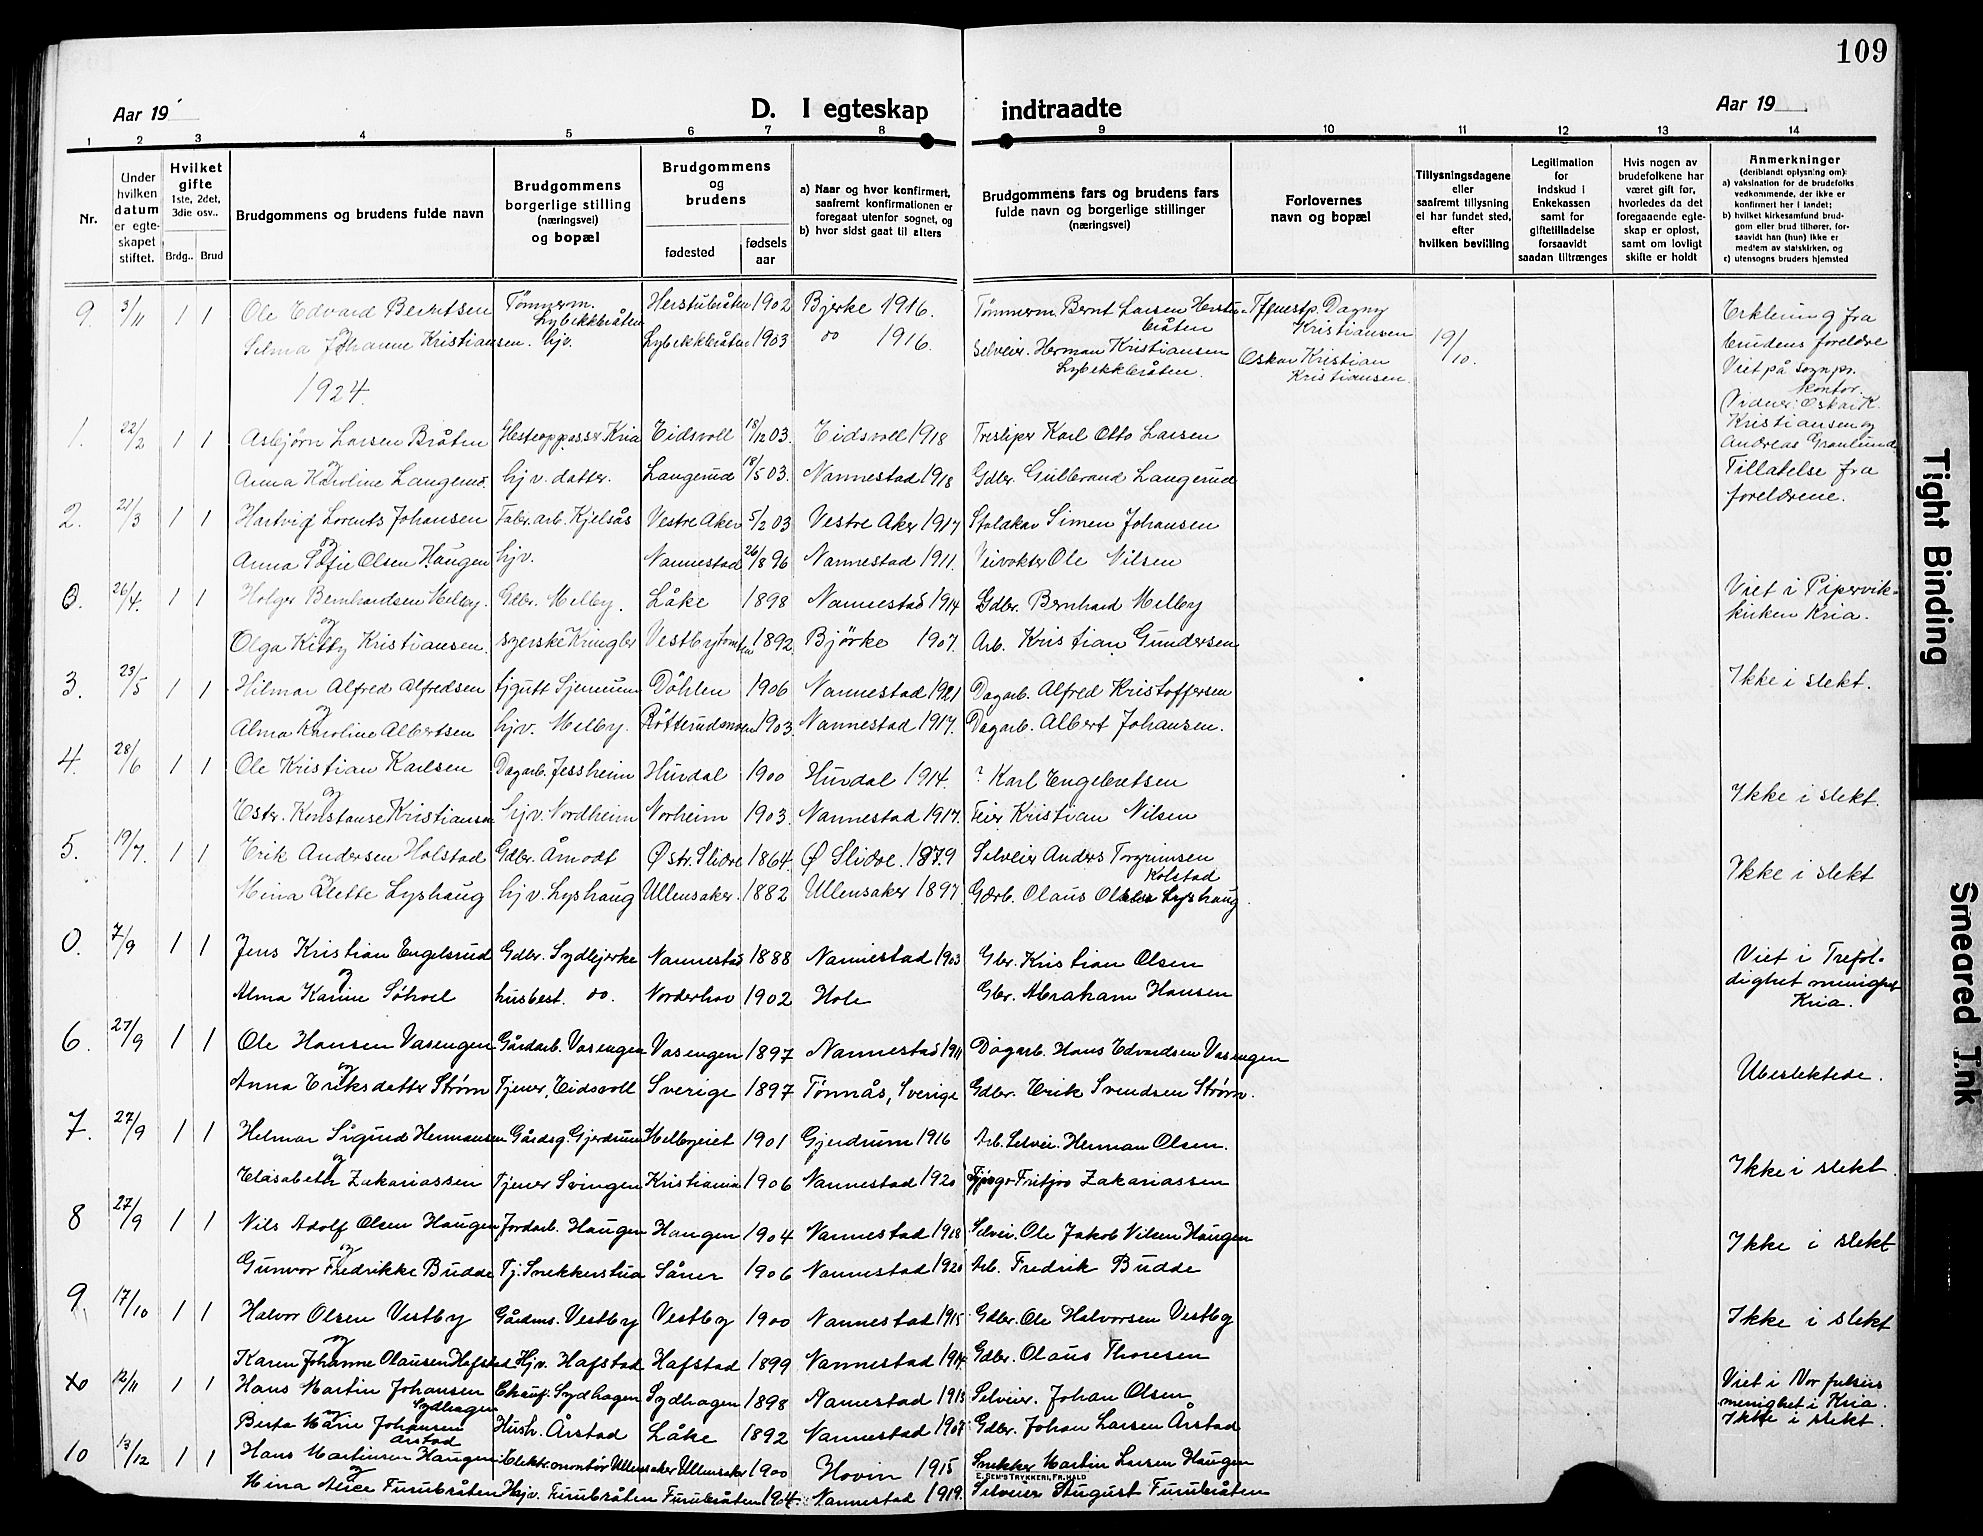 109
Aar 19
D. I egteskap indtraadte
Aar 19
1 2 3 4 5 6 7 8 9 10 11 12 13 14
Nr.
Under hvilken datum er egteskapet stiftet.
Hvilket gifte 1ste, 2det, 3die osv..
Brdg.. Brud
Brudgommens og brudens fulde navn
Brudgommens borgerlige stilling (næringsvei) og bopæl
Brudgommens og brudens
fødested
fødsels aar
a) Naar og hvor konfirmert, saafremt konfirmationen er foregaat utenfor sognet, og
b) hvor sidst gaat til alters
Brudgommens fars og brudens fars fulde navn og borgerlige stillinger (næringsvei)
Forlovernes navn og bopæl
Tillysningsdagene eller saafremt tillysning ei har fundet sted, efter hvilken bevilling
Legitimation for indskud i Enkekassen samt for giftetilladelse forsaavidt saadan tiltrænges
Hvis nogen av brudefolkene har været gift før, hvorledes da det foregaaende egteskap er opløst, samt om lovligt skifte er holdt
Anmerkninger (deriblandt oplysning om):
a) vaksination for de brudefolks vedkommende, der ikke er konfirmert her i landet;
b) hvilket kirkesamfund brudgom eller brud tilhører, forsaavidt han (hun) ikke er medlem av statskirken, og
c) utensogns bruders hjemsted
9. 3/11 1 1 Ole Edvard Berntsen Tømmerm. Lybekkbråten Herstubråten 1902 Bjerke 1916. Tømmerm Bernt Larsen Herstubråten Dagny Kristiansen 19/10. Erklæring fra
og
Selma Johanne Kristiansen. hjv. Lybekkbråten 1903 do 1916. Selveier. Herman Kristiansen Lybekkbråten. Oskar Kristian Kristiansen. brudens foreldre
Viet på sognpr. kontor.
1924.
Vidner: Oskar K. Kristiansen og
1. 22/2 1 1 Asbjørn Larsen Bråten Hestepasser Kria Eidsvoll 18/12 03. Eidsvoll 1918 Tresliper Karl Otto Larsen Andreas Granlund
og
Anna Karoline Langerud. hjv. datter. Langerud 18/5 03. Nannestad 1918 Gdbr. Gulbrand Langerud Tillatelse fra foreldrene.
2. 21/3 1 1 Hartvig Lorents Johansen Fabr.arb. Kjelsås Vestre Aker 5/2 03 Vestre Aker 1917 Simen Johansen
og
Anna Sofie Olsen Haugen hjv. Nannestad 26/8 96 Nannestad 1911. Veivokter Ole Nilsen
0. 26/4. 1 1 Holger Bernhardsen Melby. Gdbr. Melby. Låke 1898 Nannestad 1914 Gdbr. Bernhard Melby Viet i Pipervikkirken Kria.
og
Olga Kitty Kristiansen. syerske Kringler Vestbytomten 1892. Bjørke 1907. Arb. Kristian Gundersen
3. 23/5 1 1 Hilmar Alfred Alfredsen tjgutt Døhlen 1906 Nannestad 1921 Dagarb. Alfred Kristoffersen Ikke i slekt.
og
Alma Karoline Albertsen hjv. Melby. Røtterudsmoen 1903. Nannestad 1917. Dagarb. Albert Johansen.
4. 28/6 1 1 Ole Kristian Karlsen Dagarb. Jessheim Hurdal 1900 Hurdal 1914. ? Karl Engebretsen
og
Ester. Konstanse Kristiansen hjv. Nordheim Norheim 1903. Nannestad 1917. Feier Kristian Nilsen Ikke i slekt.
5. 19/7. 1 1 Erik Andersen Holstad Gdbr. Åmodt Østr. Slidre 1864. Ø Slidre. 1879 Selveier Anders Torgrimsen Kolstad Ikke i slekt
Mina Lyshaug hjv. Lyshaug Ullensaker. 1882 Ullensaker 1897 Gårb. Olaus Olsen Lyshaug.
0. 7/9 1 1 Jens Kristian Engelsrud Gdbr. Sydbjerke Nannestad 1888 Nannestad 1903 Gbr. Kristian Olsen Viet i Trefoldighet menighet Kria.
og
Alma Karine Søhoel husbest. do. Norderhov 1902 Hole Gbr. Abraham Hansen
6. 27/9 1 1 Ole Hansen Vasengen Gårdarb. Vasengen Vasengen 1897 Nannestad 1911 Dagarb. Hans Edvardsen Vasengen
og
Anna Eriksdatter Strøm Tjener, Eidsvoll Sverige 1897 Tønnås, Sverige Gdbr. Erik Svendsen Strøm. Ubeslektede.
7. 27/9 1 1 Helmar Sigurd Hermansen Gårdsg. Gjerdrum Melbyeiet 1901 Gjerdrum 1916 Arb. Selvei. Herman Olsen.
og
Elisabeth Zakariassen Tjener Svingen Kristiania 1906 Nannestad 1920 Fritjov Zakariassen Ikke i slekt.
8 27/9 1 1 Nils Adolf Olsen Haugen Jordarb. Haugen Haugen 1904 Nannestad 1918 Selvei. Ole Jakob Nilsen Haugen Ikke i slekt
og
Gunvor Fredrikke Budde Tj. Snekkerstua Såner 1906 Nannestad 1920 Arb. Fredrik Budde
9. 17/10 1 1 Halvor Olsen Vestby Gårdms. Vestby Vestby 1900 Nannestad 1915 Gdbr. Ole Halvorsen Vestby Ikke i slekt
og
Karen Johanne Olausen Hafstad Hjv. Hafstad Hafstad 1899 Nannestad 1914. Gdbr. Olaus Thoresen
12/11 1 1 Hans Martin Johansen Sydhagen Chauf. Sydhagen Sydhagen 1898 Nannestad 1913 Selveier. Johan Olsen Viet i menighet i Kria.
og
Berta Marie Johansen Årstad Hush. Årstad Låke 1892 Nannestad 1907. Gdbr. Johan Larsen Årstad Ikke i slekt.
10 13/12 1 1 Hans Martinsen Haugen Elektr.montør Ullensaker Ullensaker 1900 Hovin 1915 Snekker Martin Larsen Haugen
og
E. SEM'S TRYKKERI, FR.HALD
Mina Alice Furubråten Hjv. Furubråten Furubråten 1904. Nannestad 1919. Selveier August Furubråten
Tight Binding
Smeared Ink